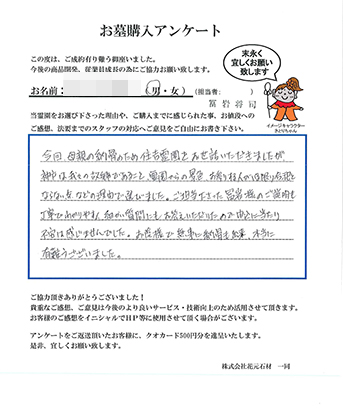 お墓購入アンケート
この度は、ご成約有り難う御座いました。
今後の商品開発、従業員成長の為にご協力お願い致します。
末永く
宜しくお願い
致します
お名前：
（男・女）
（担当者：
冨岩 将司
イメージキャラクター
きどりちゃん
当霊園をお選び下さった理由や、ご購入までに感じられた事、お値段への
ご感想、法要までのスタッフの対応へご意見をご自由にお書き下さい。
今回、母親の納骨のため住吉霊園をお世話いただきましたが
神戸は私との故郷であること、霊園からの景色、お守りする人がいな
ならない点などの理由で選びました。ご担当下さった冨岩様のご案内も
丁寧でわかりやすく、細かい質問にもお答えいただいたので購入に当たり
不安は感じませんでした。お陰様で無事に納骨も出来、本当に
有難うございました。
ご協力頂きありがとうございました！
貴重なご感想、ご意見は今後のより良いサービス・技術向上のため活用させて頂きます。
お客様のご感想をイニシャルでＨＰ等に使用させて頂く場合がございます。
アンケートをご返送頂いたお客様に、クオカード500円分を進呈いたします。
是非、宜しくお願い致します。
株式会社花元石材　一同